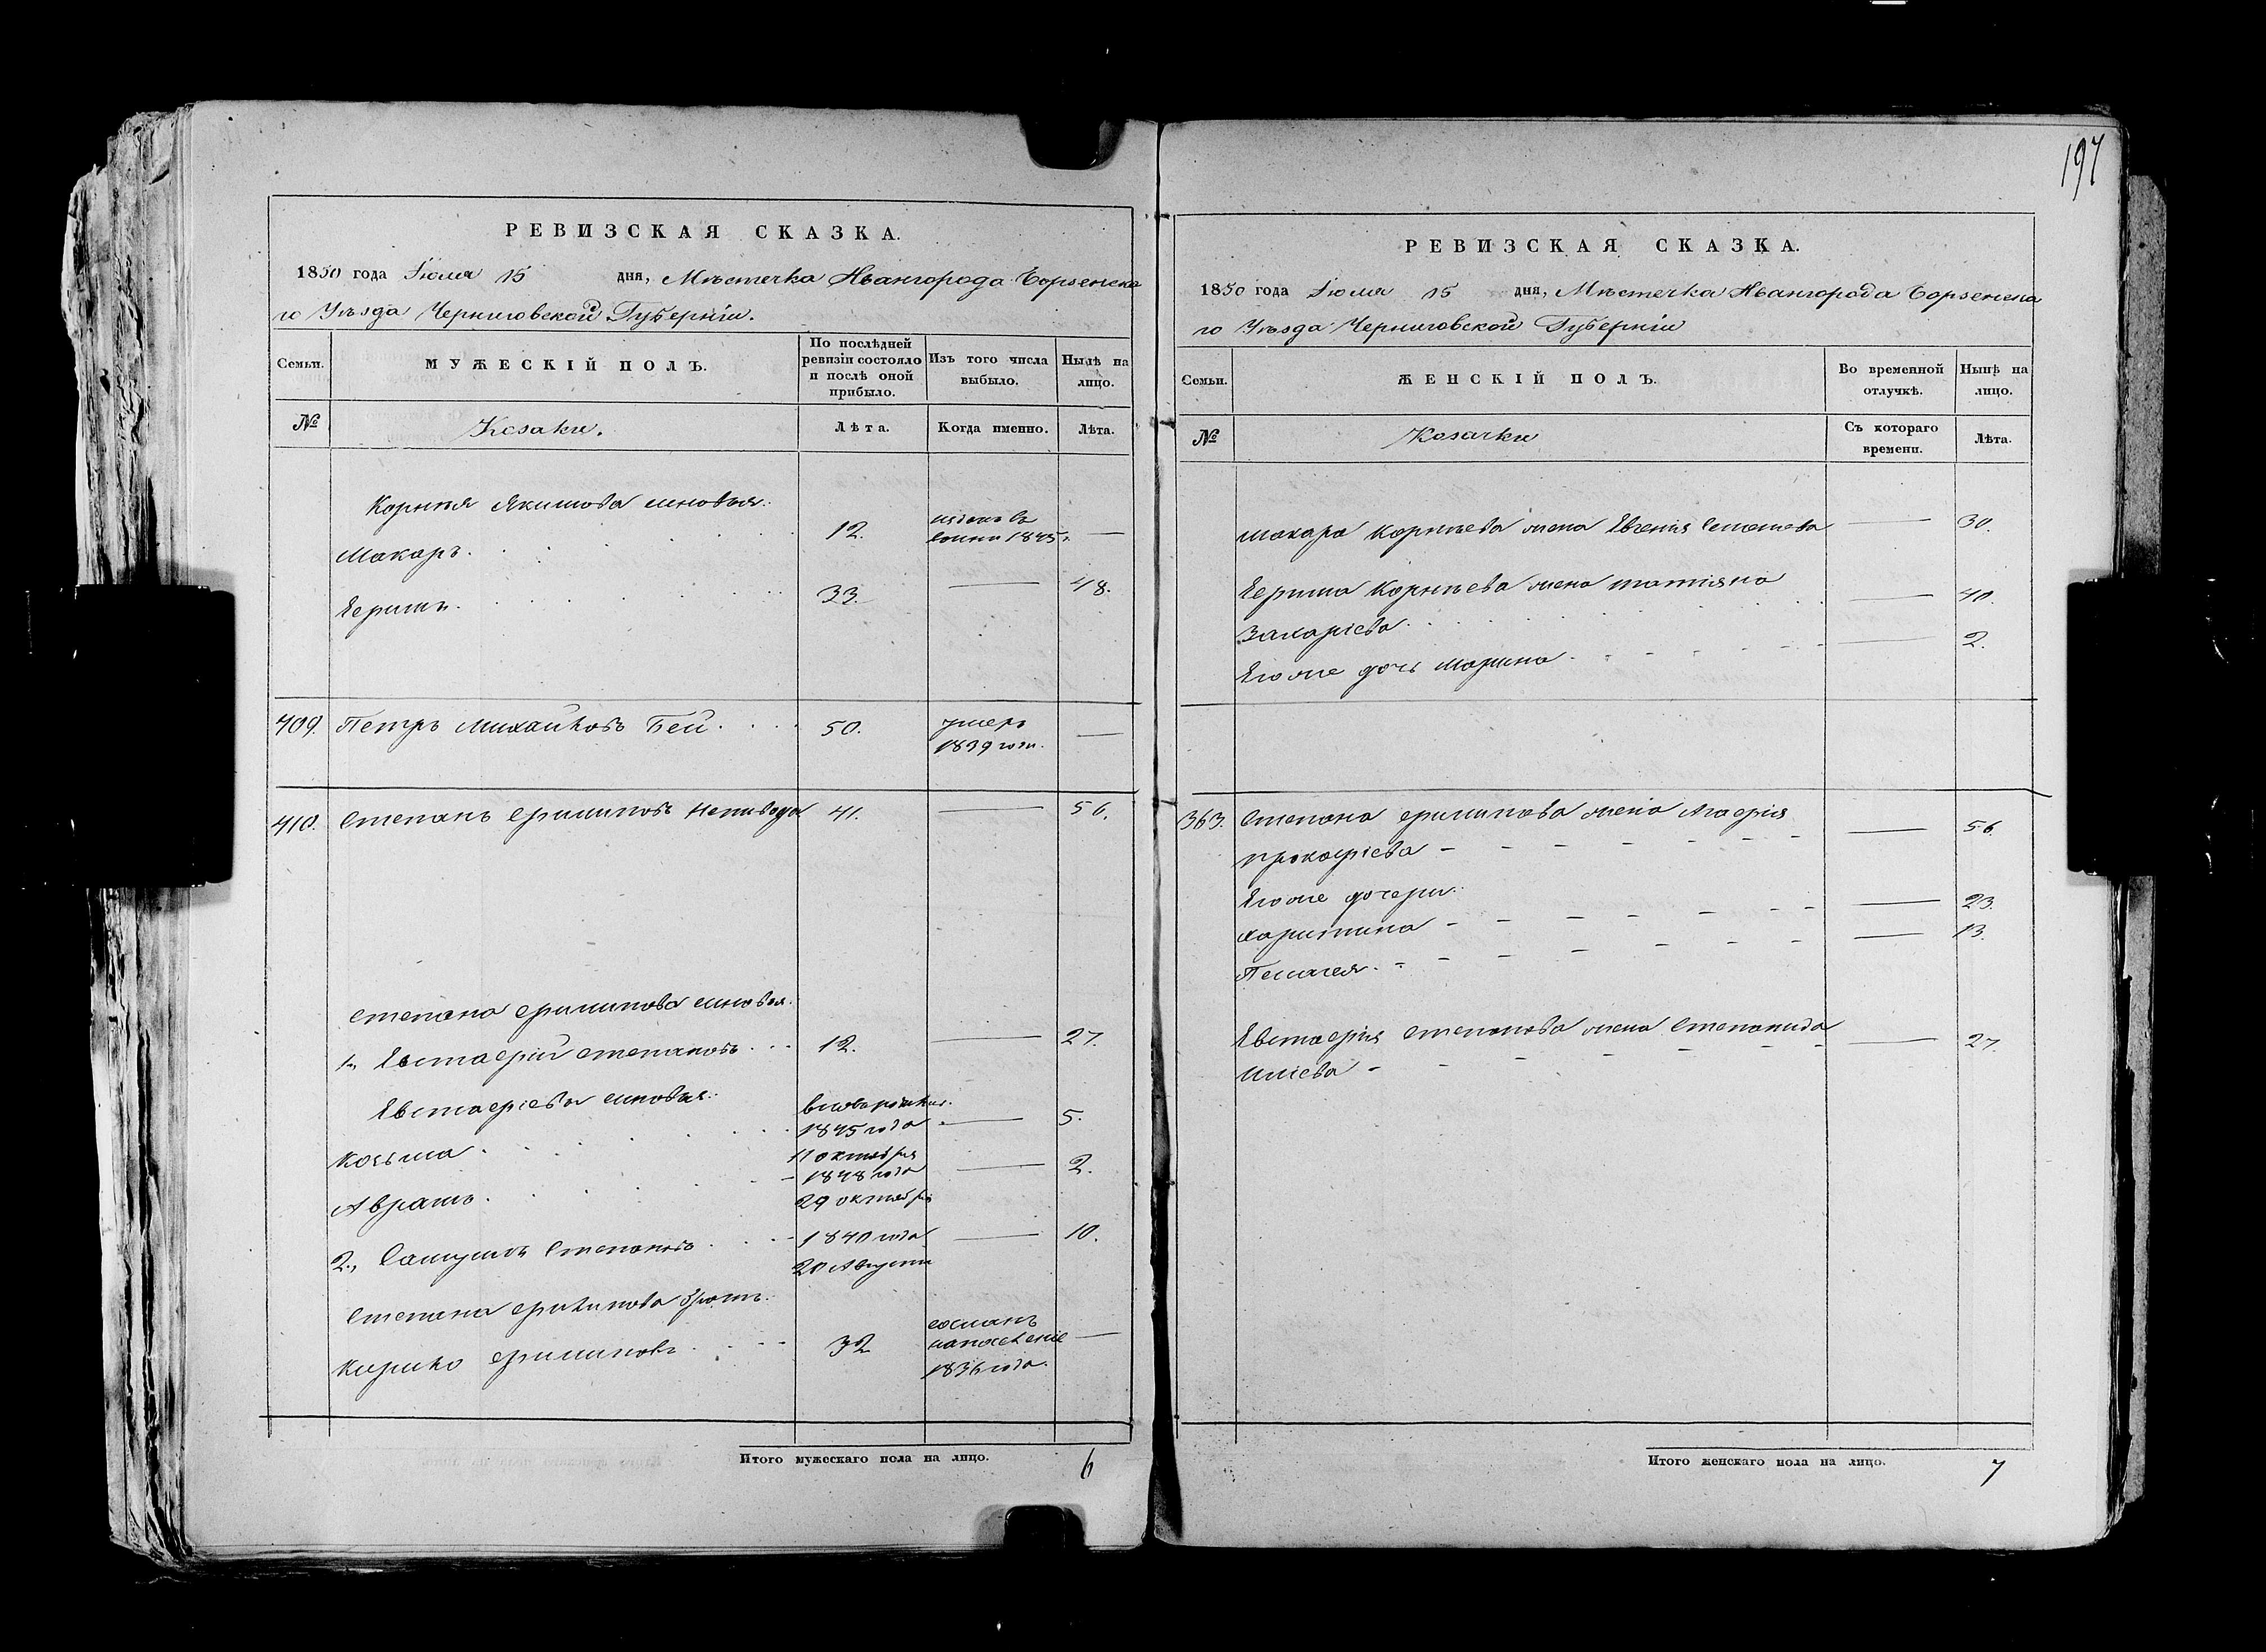 197
РЕВИЗСКАЯ СКАЗКА.
1850 года Июля 15 дня, Мѣстечка Ивангорода Борзенска
го Уѣзда Черниговской Губерніи.
Семьи.
МУЖЕСКІЙ ПОЛЪ.
По послѣдней ревизіи состояло и послѣ оной прибыло.
Изъ того числа выбыло.
Нынѣ на лицо.
№
Козаки.
Лѣта.
Когда именно.
Лѣта.
Корнѣя Якимова сыновья:
Макаръ. 12. 1845 —
Ефимъ. 33. — 48.
409. Петръ Михайловъ Бей. 50. умеръ 1839 года. —
410. Степанъ Филиповъ Непивода 41. — 56.
Степана Филипова сыновья.
1., Евстафій Степановъ 12. — 27.
Евстафіева сыновья:
Козьма. 1845 года 11 октября — 5.
Аврамъ. 1848 года 29 октября — 2.
2., Самуилъ Степановъ 1840 года 20 Августа — 10.
Степана Филипова братъ:
Кирило Филиповъ 32 сосланъ на поселеніе 1836 года. —
Итого мужескаго пола на лицо. 6
РЕВИЗСКАЯ СКАЗКА.
1850 года Июля 15 дня, Мѣстечка Ивангорода Борзенска
го Уѣзда Черниговской Губерніи
Семьи.
ЖЕНСКІЙ ПОЛЪ.
Во временной отлучкѣ.
Нынѣ на лицо.
№
Козачки
Съ котораго времени.
Лѣта.
Макара Корнѣева жена Евгенія — 30.
Ефима Корнѣева жена Татіяна
Захаріева — 40.
Его же дочь Марина — 2.
363. Степана Филипова жена Агафія
Прокофіева — 56.
Его же дочери:
Харитина — 23.
Пелагея. — 13.
Евстафія Степанова жена Степанида
Иліева — 27.
Итого женскаго пола на лицо. 7